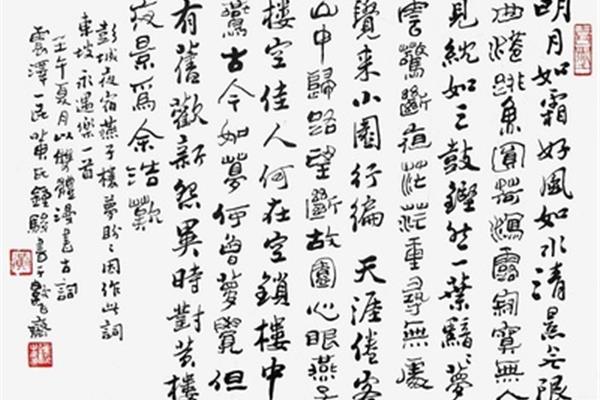 明月如霜好風如水清景无限
曲港跳魚圓荷瀉露寂寞無人
見紞如三鼓鏗然一葉黯黯夢
雲驚斷夜茫茫重尋無處
覺来小園行遍 天涯倦客
山中歸路望斷故園心眼燕子
樓空佳人何在空鎖樓中
燕古今如夢何曾夢覺但
有舊歡新怨異時對黄樓
夜景爲余浩歎
彭城夜宿燕子樓夢盼盼因作此詞
東坡永遇樂一首
壬午夏月以雙體漫書古詞
雲澤一民 鍾駿書于 齋